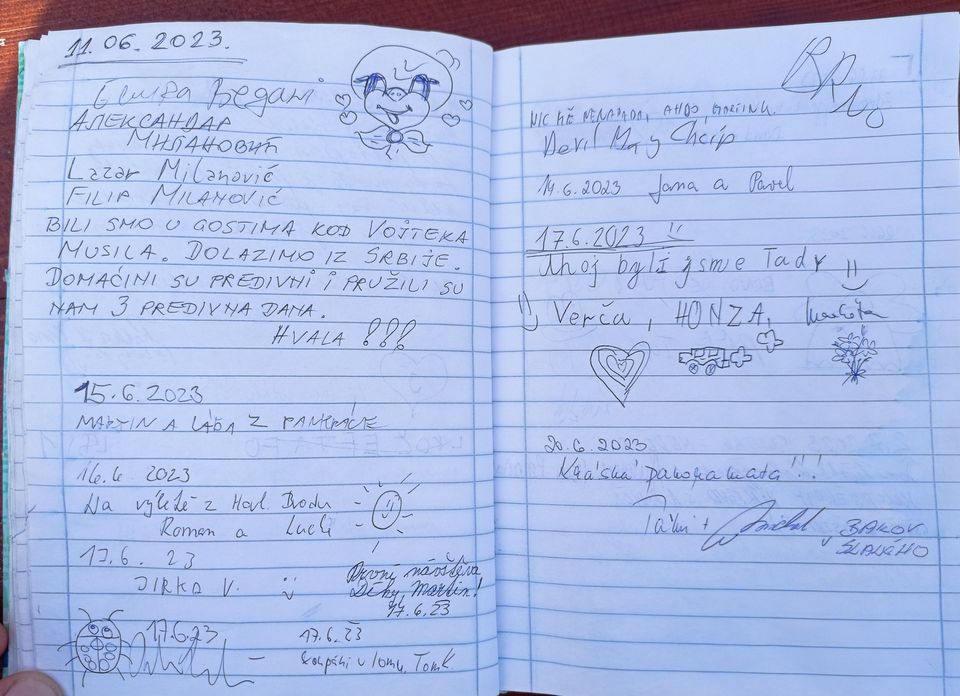 11.06.2023.
АЛЕКСАНДАР
МИЛАНОВИЋ
Lazar Milanović
FILIP MILANOVIĆ
BILI SMO U GOSTIMA KOD VOJTEKA
MUSILA. DOLAZIMO IZ SRBIJE.
DOMAĆINI SU PREDIVNI I PRUŽILI SU
NAM 3 PREDIVNA DANA.
HVALA !!!
15.6.2023
MARTIN A LÁĎA Z PANKRÁCE
2023
Na výletě z Havl. Brodu
Roman a
17.6. 23
JIRKA V.
První návštěva
Díky, Martin!
17.6.23
17.6.23
17.6.23
v lomu, Tom K.
NIC MĚ NENAPADÁ, AHOJ
Devil
14.6.2023 Jana a Pavel
17.6.2023
Ahoj byli jsme Tady
Verča, HONZA, Markéta
20.6.2023
Krásná panoramata!!!
BAKOV